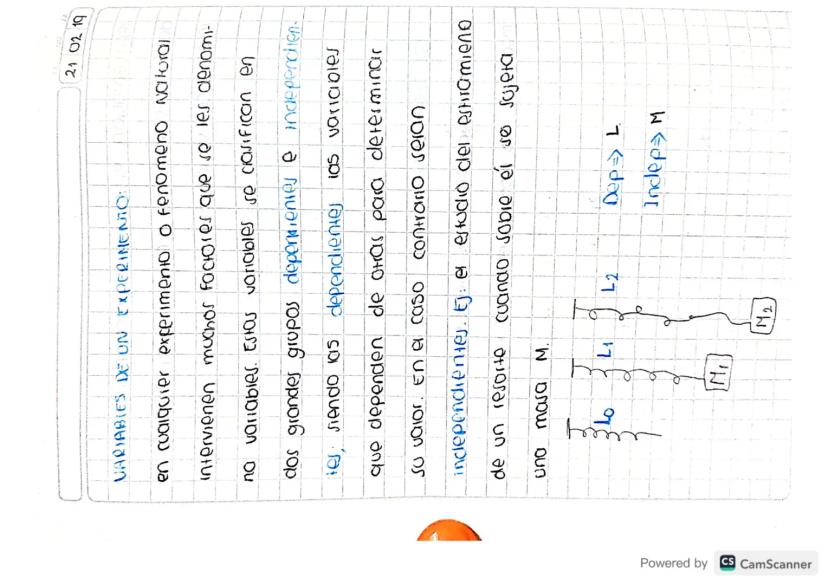 21 02 19
VARIABLES DE UN EXPERIMENTO:
en cualquier experimento o fenomeno natural
intervienen muchos factores que se les denomi-
na variables. Estas variables se clasifican en
dos grandes grupos dependientes e independien-
tes, siendo las dependientes las variables
que dependen de otras para determinar
su valor. En el caso contrario seran
independientes. Ej: el estudio del estiramiento
de un resorte cuando sobre él se sujeta
una masa M.
L0 L1 L2
M1 M2
Dep=> L
Indep=> M
Powered by CS CamScanner